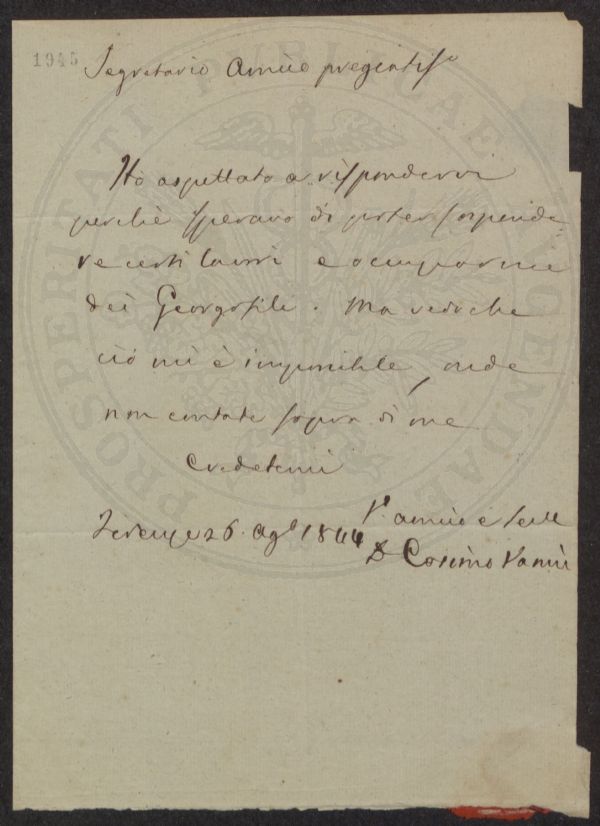 1945
Segretario Amico pregiatiss.o
Ho aspettato a rispondervi
perchè speravo di poter sospende
re certi lavori e occuparmi
dei Georgofili. Ma vedo che
ciò mi è impossibile, onde
non contate sopra di me
Credetemi
Firenze 26. Ag.o 1844
V.o amico e
D Cosimo Vanni
PROSPERITATI PUBLICAE AUGENDAE